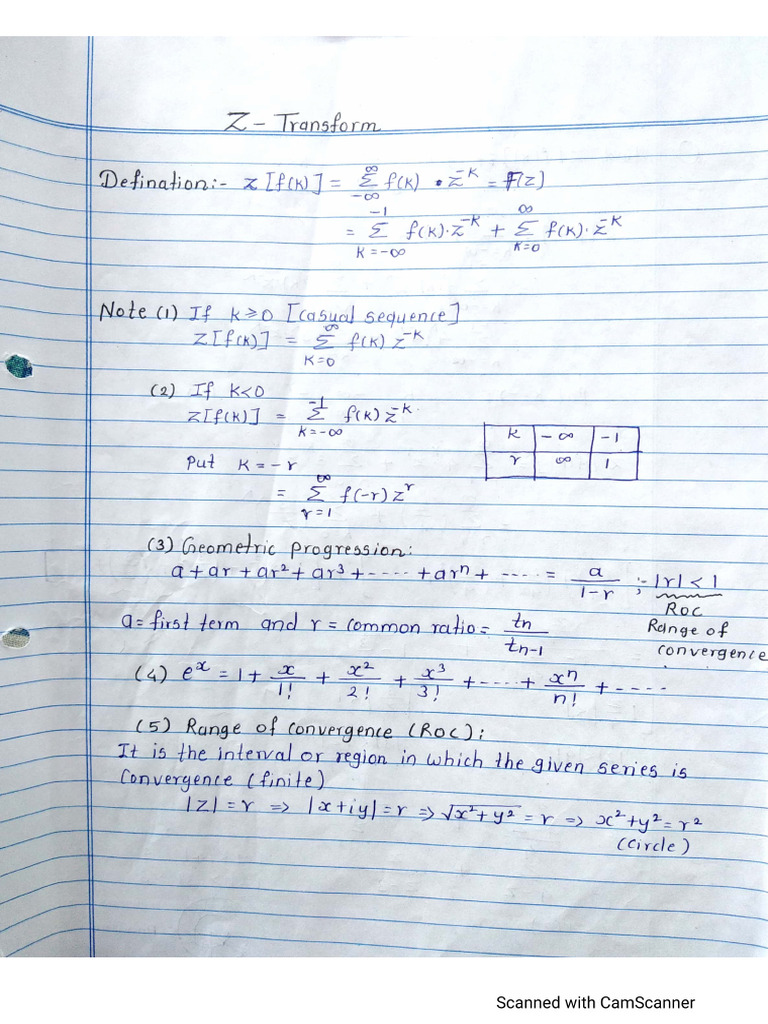 Z - Transform
Defination:- Z[f(k)] = ∞ Σ -∞ f(k) · z^-k = F(z)
= -1 Σ k=-∞ f(k)·z^-k + ∞ Σ k=0 f(k)·z^-k
Note (1) If k⩾0 [casual sequence]
Z[f(k)] = ∞ Σ k=0 f(k) z^-k
(2) If k<0
Z[f(k)] = -1 Σ k=-∞ f(k) z^-k
k -∞ -1
r ∞ 1
Put k=-r
= ∞ Σ r=1 f(-r) z^r
(3) Geometric progression:
a + ar + ar² + ar³ + ----- + ar^n + ---- = a/(1-r) ;- |r| < 1
ROC
Range of
convergence
a = first term and r = common ratio = tn/tn-1
(4) e^x = 1 + x/1! + x²/2! + x³/3! + ----- + x^n/n! + -----
(5) Range of convergence (ROC):
It is the interval or region in which the given series is
convergence (finite)
|z| = r ⇒ |x+iy| = r ⇒ √x²+y² = r ⇒ x²+y² = r²
(circle)
Scanned with CamScanner